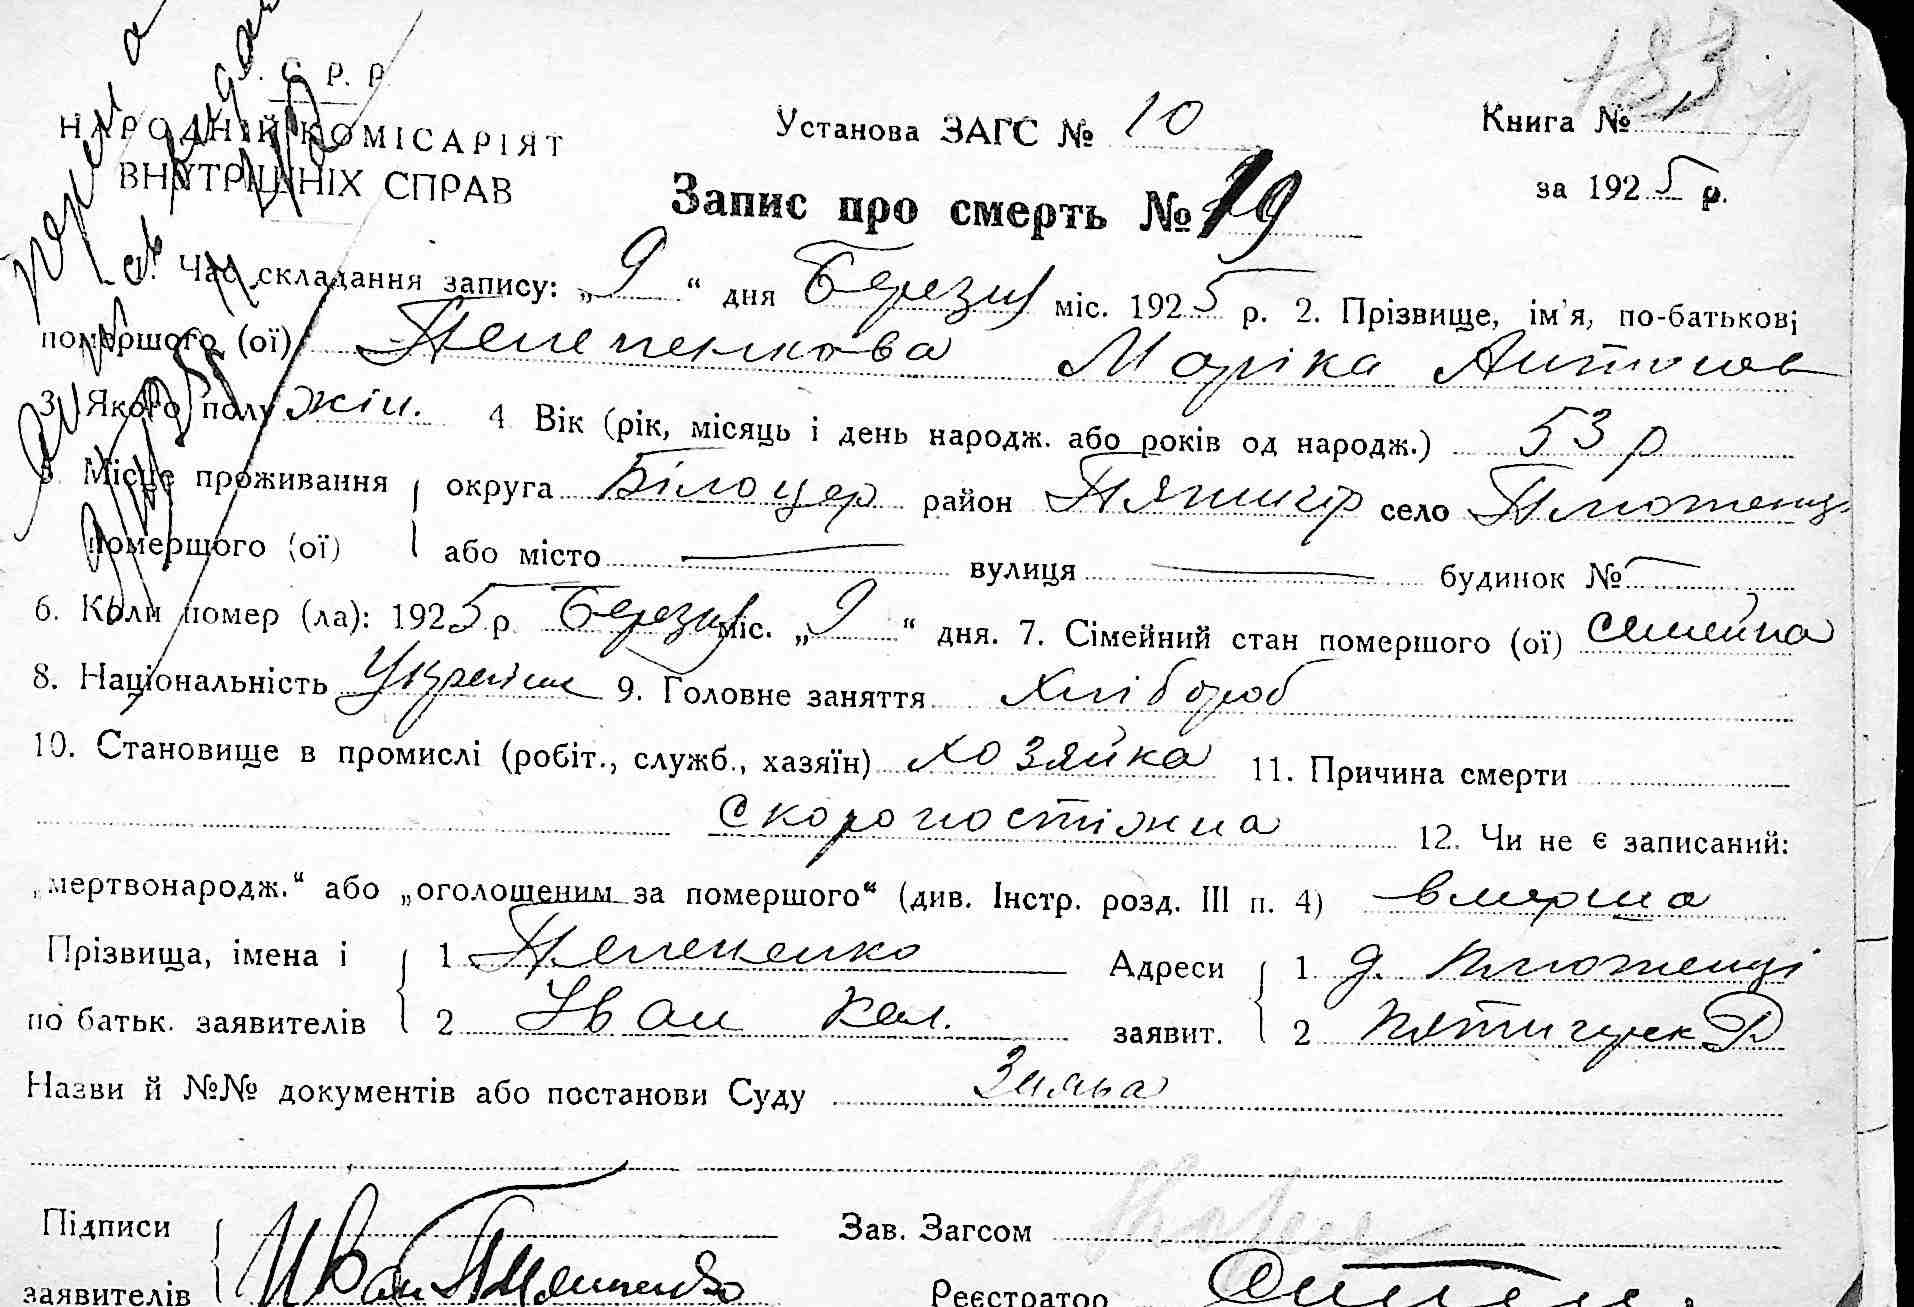 С. Р. Р.
183
НАРОДНІЙ КОМІСАРІЯТ
ВНУТРІШНІХ СПРАВ
Установа ЗАГС № 10
Книга № 1
за 1925 р.
Запис про смерть № 19
1. Час складання запису: „9“ дня Березня міс. 1925 р. 2. Прізвище, ім'я, по-батькові
помершого (ої) Маріка Антонов
3. Якого полу жін. 4 Вік (рік, місяць і день народж. або років од народж.) 53 р
5. Місце проживання округа Білоцер район Пятигір село
помершого (ої) або місто — вулиця — будинок № —
6. Коли помер (ла): 1925 р. Березня міс. „9“ дня. 7. Сімейний стан помершого (ої) семейна
8. Національність 9. Головне заняття Хлібороб
10. Становище в промислі (робіт., служб., хазяїн) хозяйка 11. Причина смерти
скоропостіжна 12. Чи не є записаний:
„мертвонародж.“ або „оголошеним за помершого“ (див. Інстр. розд. III п. 4) вмерша
Прізвища, імена і 1 Адреси 1 д.
по батьк. заявителів 2 Іван Кал. заявит. 2 Пятигорск Р
Назви й №№ документів або постанови Суду
Підписи Зав. Загсом
заявителів Иван Реєстратор